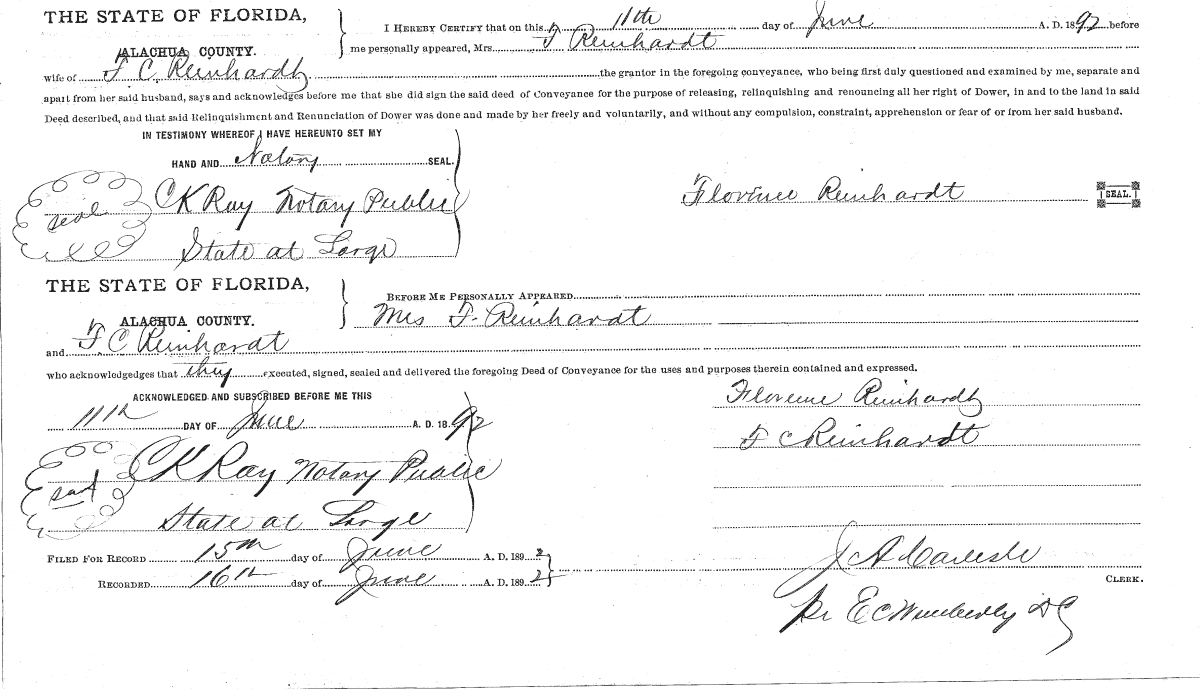 THE STATE OF FLORIDA,
ALACHUA COUNTY.
I HEREBY CERTIFY that on this 11th day of June A. D. 1892 before
me personally appeared, Mrs. F Reinhardt
wife of F. C. Reinhardt the grantor in the foregoing conveyance, who being first duly questioned and examined by me, separate and
apart from her said husband, says and acknowledges before me that she did sign the said deed of Conveyance for the purpose of releasing, relinquishing and renouncing all her right of Dower, in and to the land in said
Deed described, and that said Relinquishment and Renunciation of Dower was done and made by her freely and voluntarily, and without any compulsion, constraint, apprehension or fear of or from her said husband.
IN TESTIMONY WHEREOF I HAVE HEREUNTO SET MY
HAND AND Notary SEAL.
seal
C K Ray Notary Public
Florence Reinhardt SEAL.
State at Large
THE STATE OF FLORIDA,
ALACHUA COUNTY.
BEFORE ME PERSONALLY APPEARED
Mrs F. Reinhardt
and F C Reinhardt
who acknowledgedges that they executed, signed, sealed and delivered the foregoing Deed of Conveyance for the uses and purposes therein contained and expressed.
ACKNOWLEDGED AND SUBSCRIBED BEFORE ME THIS
11th DAY OF June A. D. 1892
Florence Reinhardt
F C Reinhardt
seal
C K Ray Notary Public
State at Large
FILED FOR RECORD 15th day of June A. D. 1892
RECORDED 16th day of June A. D. 1892
J A
CLERK.
pr E C Wimberly D C